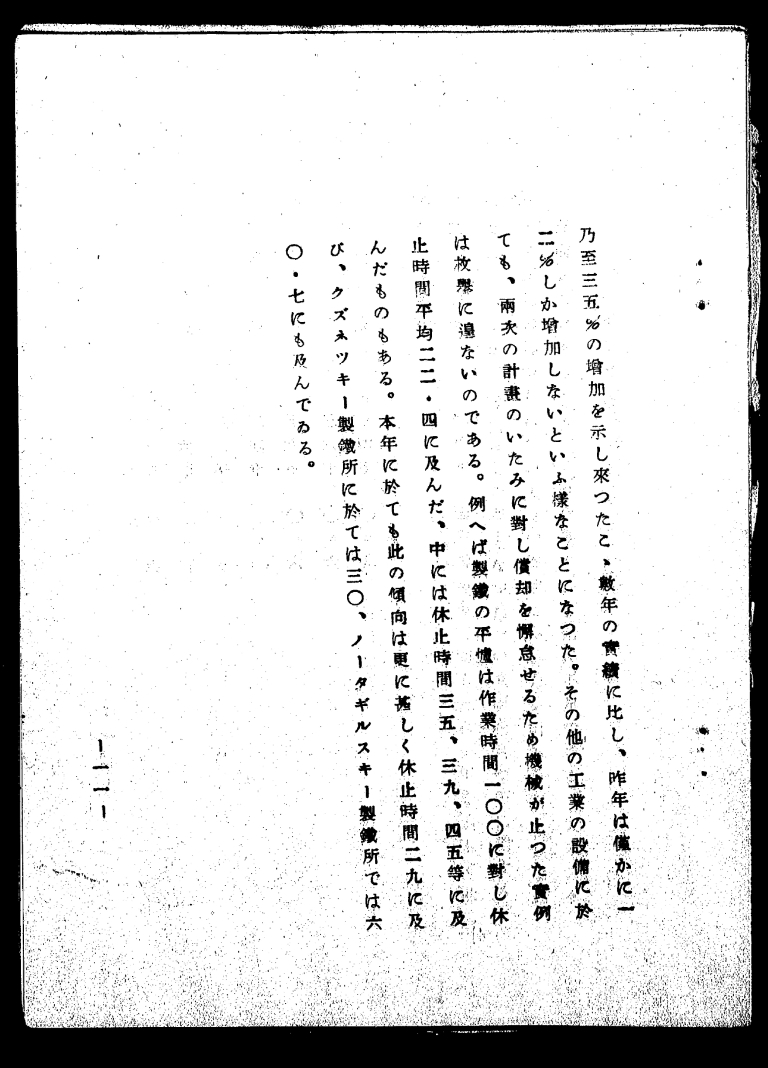 乃至三五%の增加を示し來つたこゝ數年の實績に比し、昨年は僅かに一
二%しか增加しないといふ樣なことになつた。その他の工業の設備に於
ても、兩次の計畫のいたみに對し償却を懈怠せるため機械が止つた實例
は枚擧に遑ないのである。例へば製鐵の平爐は作業時間一〇〇に對し休
止時間平均二二・四に及んだ、中には休止時間三五、三九、四五等に及
んだものもある。本年に於ても此の傾向は更に甚しく休止時間二九に及
び、クズネツキー製鐵所に於ては三〇、ノータギルスキー製鐵所では六
〇・七にも及んでゐる。
ー一一ー